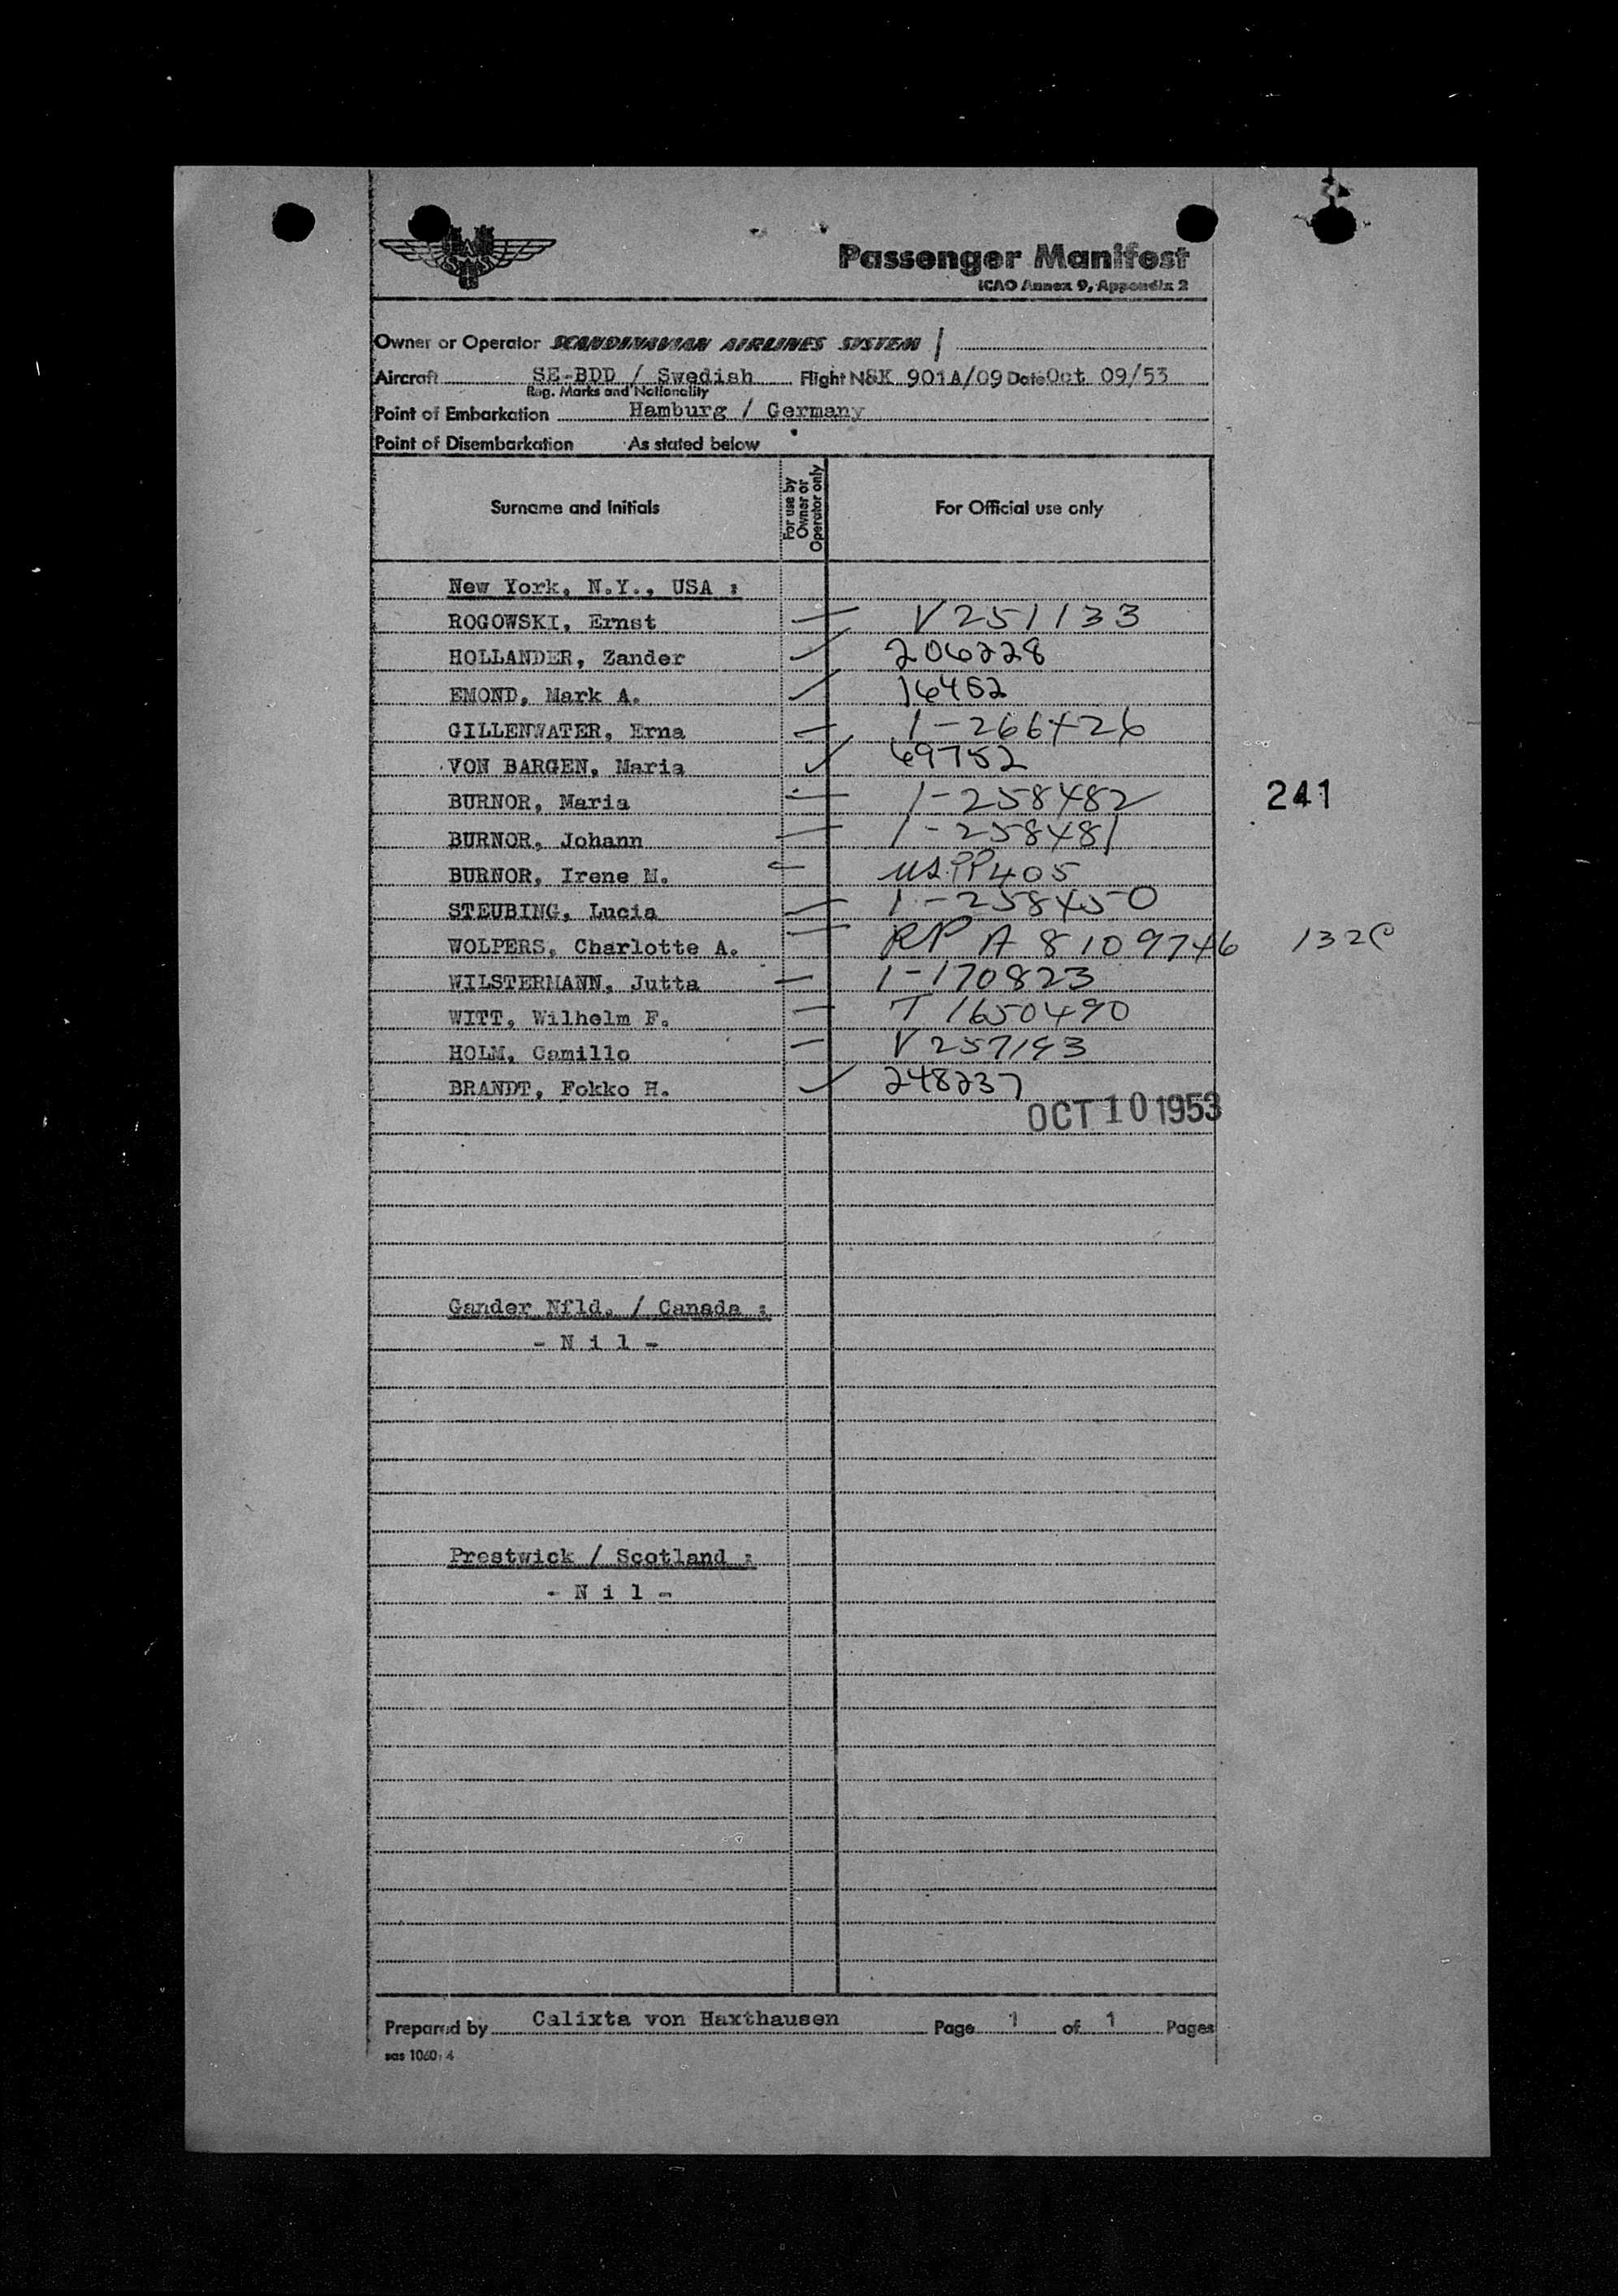 SAS
Passenger Manifest
ICAO Annex 9, Appendix 2
Owner or Operator SCANDINAVIAN AIRLINES SYSTEM /
Aircraft SE-BDD / Swedish Flight No SK 901A/09 Date Oct 09/53
Reg. Marks and Nationality
Point of Embarkation Hamburg / Germany
Point of Disembarkation As stated below
Surname and Initials For use by Owner or Operator only For Official use only
New York, N.Y., USA :
ROGOWSKI, Ernst V251133
HOLLANDER, Zander 206228
EMOND, Mark A. 16452
GILLENWATER, Erna 1-266426
VON BARGEN, Maria 69752
BURNOR, Maria 1-258482 241
BURNOR, Johann 1-258481
BURNOR, Irene M. US.PP405
STEUBING, Lucia 1-258450
WOLPERS, Charlotte A. RP A 8109746 132C
WILSTERMANN, Jutta 1-170823
WITT, Wilhelm F. T 1650490
HOLM, Camillo V 257193
BRANDT, Fokko H. 248237
OCT 10 1953
Gander Nfld. / Canada :
- N i l -
Prestwick / Scotland :
- N i l -
Prepared by Calixta von Haxthausen Page 1 of 1 Pages
sas 1060: 4